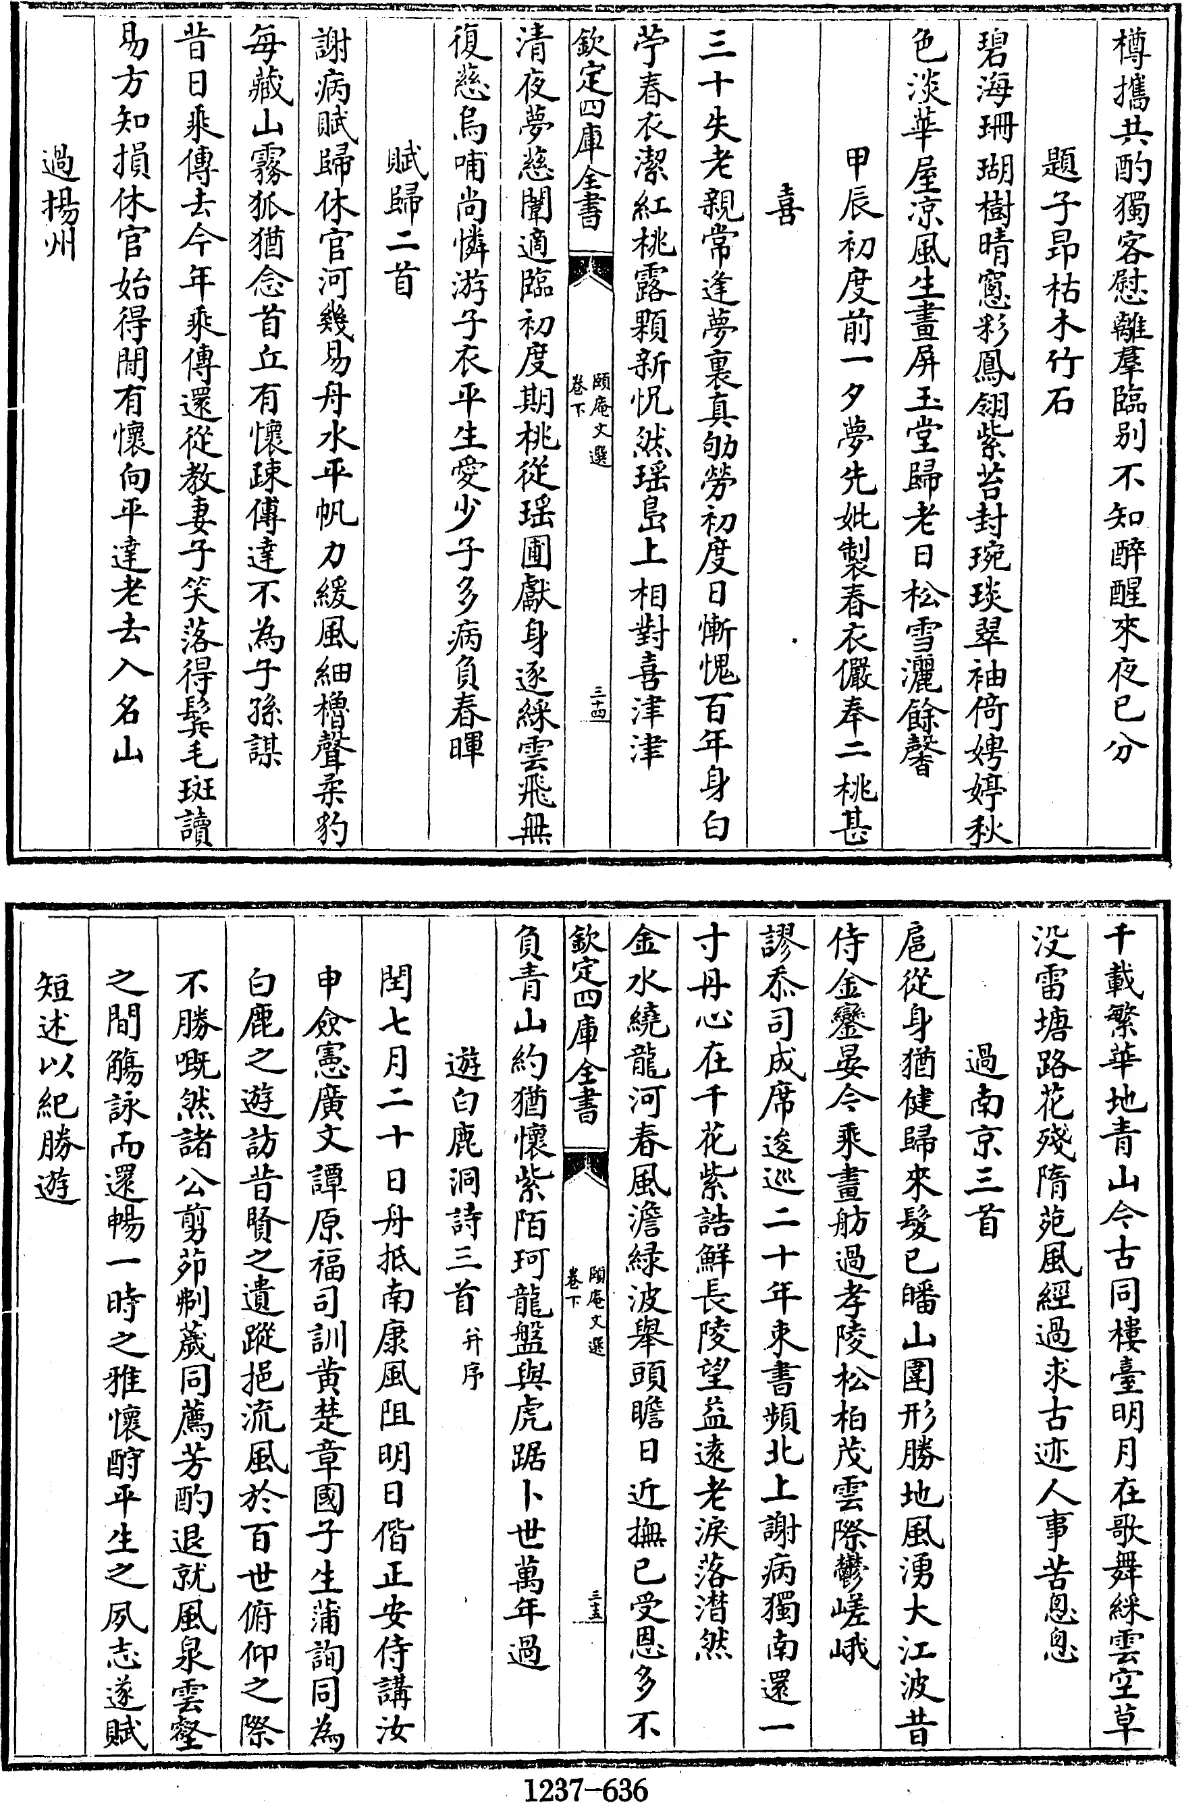 樽攜共酌獨客慰離羣臨别不知醉醒來夜已分
題子昻枯木竹石
碧海珊瑚樹晴窻彩鳳翎紫苔封琬琰翠袖倚娉婷秋
色淡華屋凉風生畫屏玉堂歸老日松雪灑餘馨
甲辰初度前一夕夢先妣製春衣儼奉二桃甚
喜
三十失老親常逢夢裏真劬勞初度日慚愧百年身白
苧春衣潔紅桃露顆新怳然瑶島上相對喜津津
欽定四庫全書
頤庵文選
卷下
三十四
清夜夢慈闈適臨初度期桃從瑶圃獻身逐綵雲飛無
復慈烏哺尚憐游子衣平生愛少子多病負春暉
賦歸二首
謝病賦歸休官河幾易舟水平帆力緩風細櫓聲柔豹
每藏山霧狐猶念首丘有懷疎傅達不為子孫謀
昔日乘傳去今年乘傳還從教妻子笑落得鬂毛斑讀
易方知損休官始得閒有懷向平達老去入名山
過揚州
千載繁華地青山今古同樓臺明月在歌舞綵雲空草
没雷塘路花殘隋苑風經過求古迹人事苦悤悤
過南京三首
扈從身猶健歸來髮已皤山圍形勝地風湧大江波昔
侍金鑾晏今乘畫舫過孝陵松柏茂雲際鬱嵯峨
謬忝司成席逡巡二十年束書頻北上謝病獨南還一
寸丹心在千花紫誥鮮長陵望益遠老淚落潸然
金水繞龍河春風澹緑波舉頭瞻日近撫已受恩多不
欽定四庫全書
頤庵文選
卷下
三十五
負青山約猶懷紫陌珂龍盤與虎踞卜世萬年過
遊白鹿洞詩三首并序
閏七月二十日舟抵南康風阻明日偕正安侍講汝
申僉憲廣文譚原福司訓黄楚章國子生蒲詢同為
白鹿之遊訪昔賢之遺蹤挹流風於百世俯仰之際
不勝嘅然諸公剪茆剃薉同薦芳酌退就風泉雲壑
之間觴詠而還暢一時之雅懷酧平生之夙志遂賦
短述以紀勝遊
1237-636